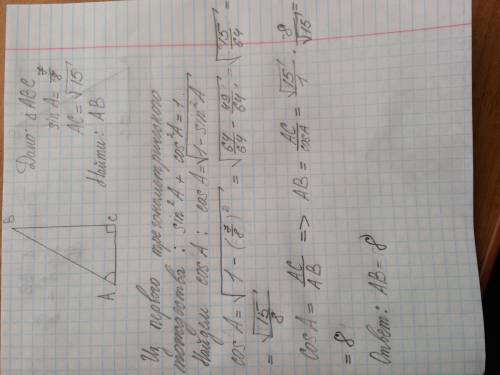 Дано: △ABC
sin A = 7/8
AC = √15
Найти: AB
B
A
C
Из первого тригонометрического
тождества: sin²A + cos²A = 1.
Найдем cos A: cos A = √(1 - sin²A)
cos A = √(1 - (7/8)²) = √(64/64 - 49/64) = √(15/64) =
= √15/8
cos A = AC/AB => AB = AC/cos A = √15/1 · 8/√15 =
= 8
Ответ: AB = 8